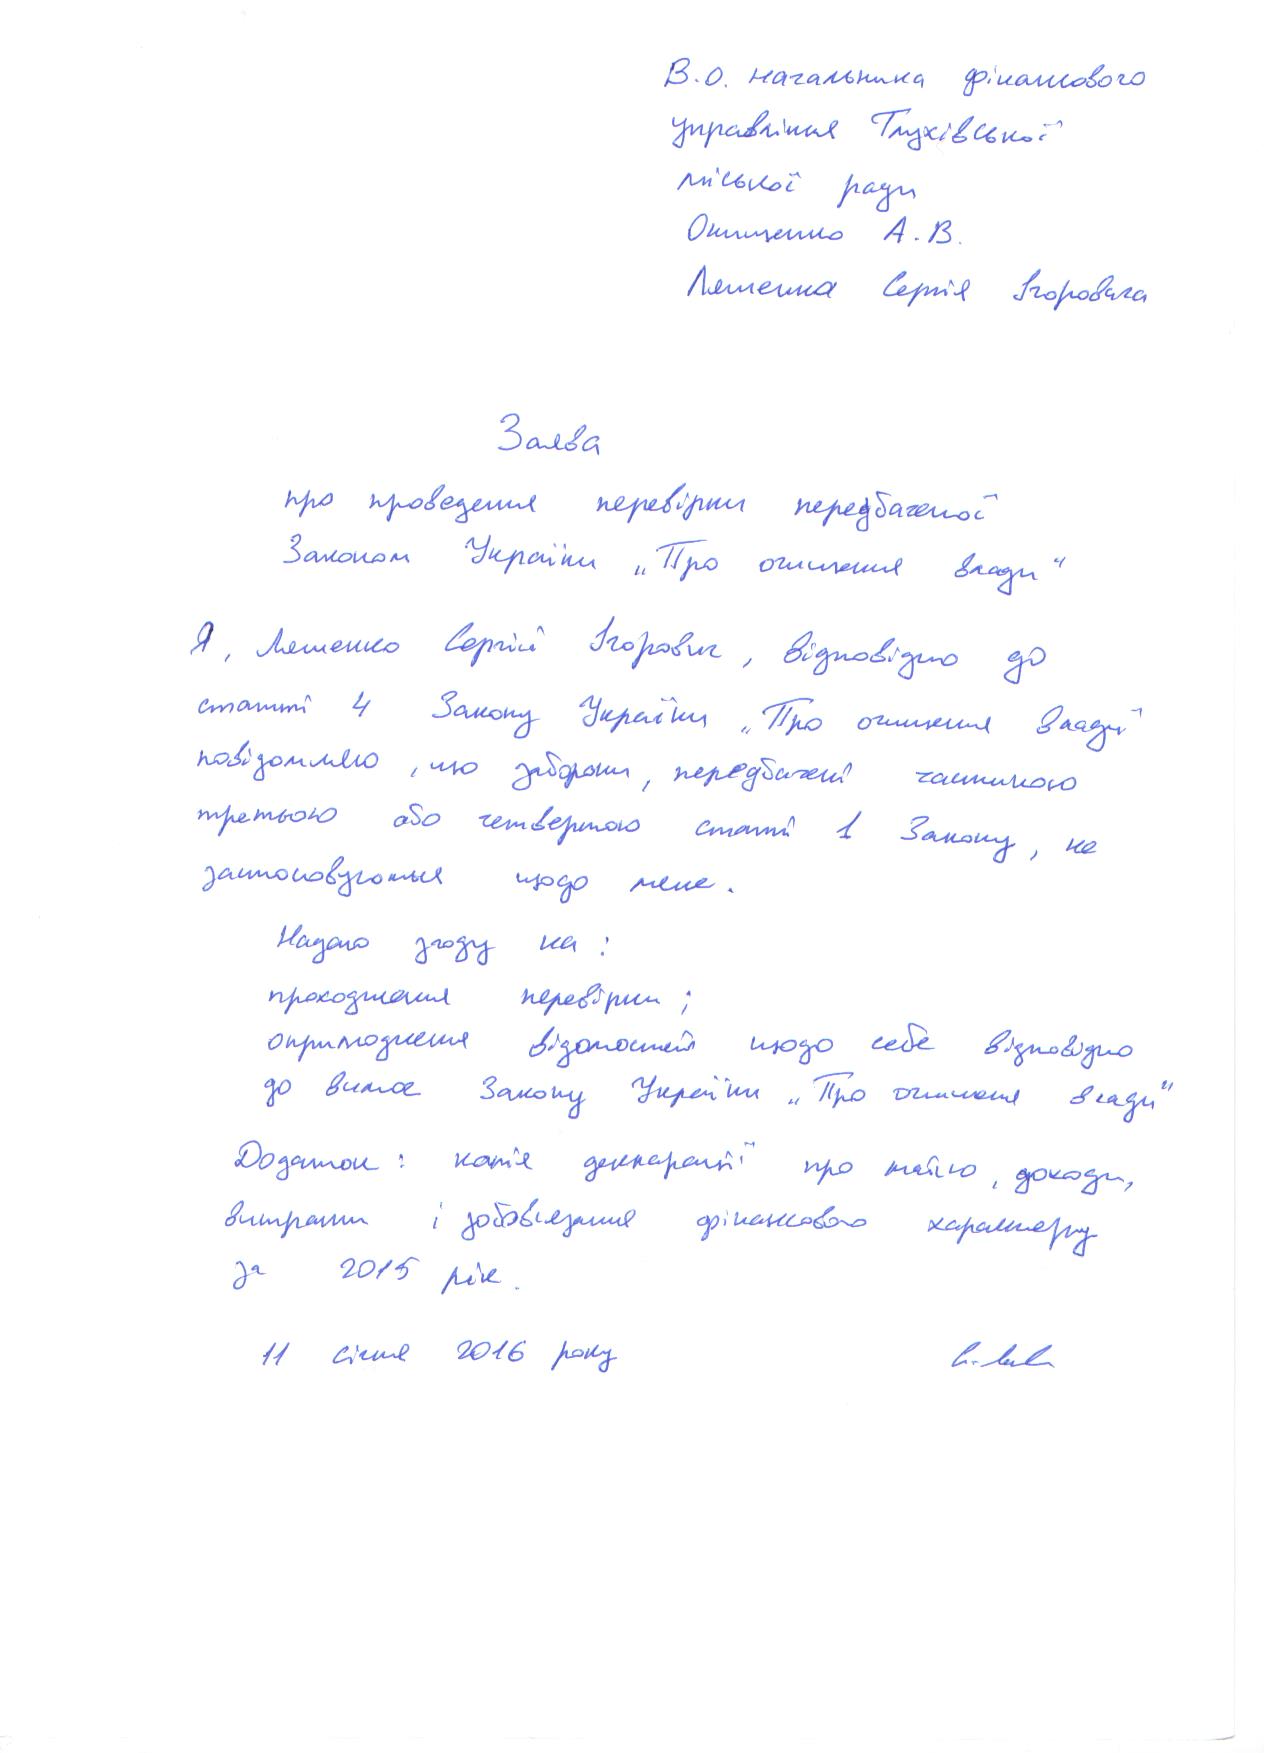 В.О. начальника фінансового
управління Глухівської
міської ради
Онищенко А.В.
Лященка Сергія Ігоровича
Заява
про проведення перевірки передбаченої
Законом України „Про очищення влади"
Я, Лященко Сергій Ігорович, відповідно до
статті 4 Закону України „Про очищення влади"
повідомляю, що заборони, передбачені частиною
третьою або четвертою статті 1 Закону, не
застосовуються щодо мене.
Надаю згоду на:
проходження перевірки;
оприлюднення відомостей щодо себе відповідно
до вимог Закону України „Про очищення влади"
Додаток: копія декларації про майно, доходи,
витрати і зобов'язання фінансового характеру
за 2015 рік.
11 січня 2016 року